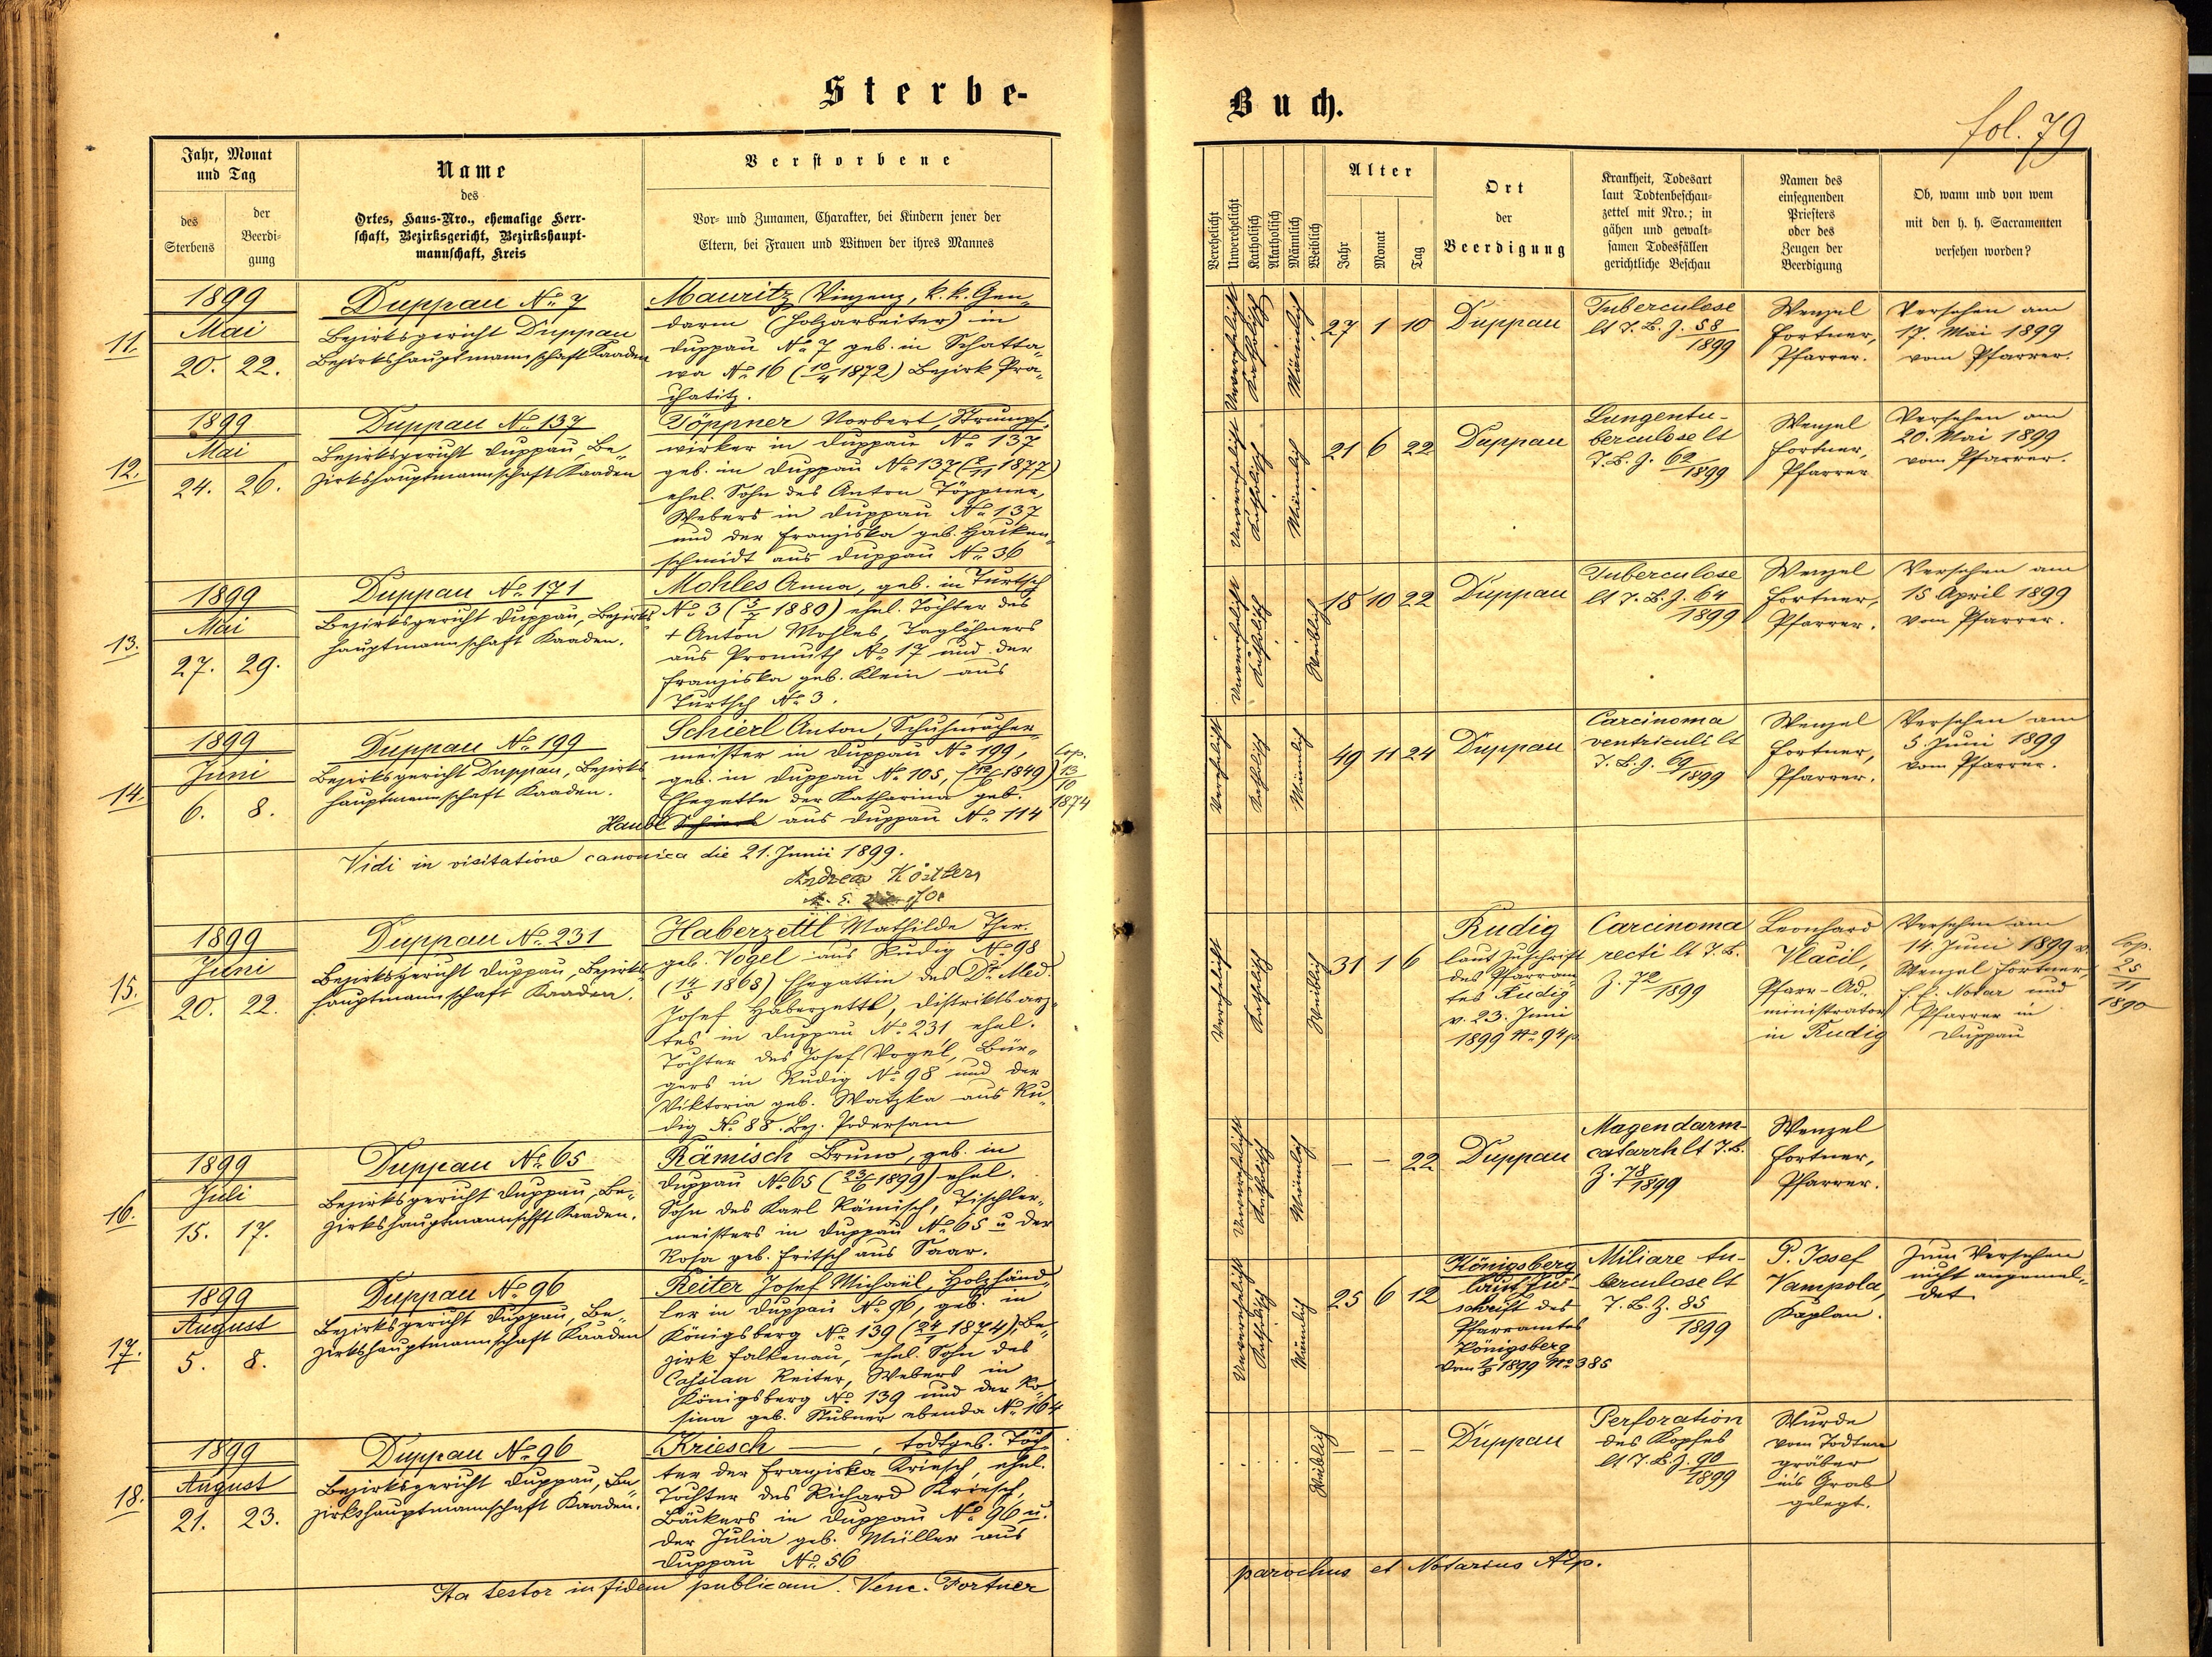 Sterbe-
Buch.
fol. 79
Jahr, Monat
und Tag
des
Sterbens
der
Beerdi-
gung
Name
des
Ortes, Haus-Nro., ehemalige Herr-
schaft, Bezirksgericht, Bezirkshaupt-
mannschaft, Kreis
Verstorbene
Vor- und Zunamen, Charakter, bei Kindern jener der
Eltern, bei Frauen und Witwen der ihres Mannes
Verehelicht
Unverehelicht
Katholisch
Akatholisch
Männlich
Weiblich
Alter
Jahr
Monat
Tag
Ort
der
Beerdigung
Krankheit, Todesart
laut Todtenbeschau-
zettel mit Nro.; in
gähen und gewalt-
samen Todesfällen
gerichtliche Beschau
Namen des
einsegnenden
Priesters
oder des
Zeugen der
Beerdigung
Ob, wann und von wem
mit den h. h. Sacramenten
versehen worden?
11.
1899
Mai
20. 22.
Duppau No. 7
Bezirksgericht Duppau
Bezirkshauptmannschaft Kaaden
Mauritz Vinzenz, k. k. Gen-
darm (Holzarbeiter) in
Duppau No. 7 geb. in Schatta-
wa No. 16 (10/4 1872) Bezirk Pra-
chatitz.
Unverehelicht
Katholisch
Männlich
27 1 10
Duppau
Tuberculose
lt T. B. Z. 58/1899
Wenzel
Fortner,
Pfarrer.
Versehen am
17. Mai 1899
vom Pfarrer.
12.
1899
Mai
24. 26.
Duppau No. 137
Bezirksgericht Duppau, Be-
zirkshauptmannschaft Kaaden
Töppner Norbert, Strumpf-
wirker in Duppau No. 137
geb. in Duppau No. 137 (2/11 1877)
ehel. Sohn des Anton Töppner,
Webers in Duppau No. 137
und der Franziska geb. Hacken-
schmidt aus Duppau No. 36
Unverehelicht
Katholisch
Männlich
21 6 22
Duppau
Lungentu-
berculose lt
T. B. Z. 62/1899
Wenzel
Fortner,
Pfarrer
Versehen am
20. Mai 1899
vom Pfarrer.
13.
1899
Mai
27. 29.
Duppau No. 171
Bezirksgericht Duppau, Bezirks
hauptmannschaft Kaaden.
Mohles Anna, geb. in Turtsch
No. 3 (5/7 1880) ehel. Tochter des
+ Anton Mohles, Taglöhners
aus Promuth No. 17 und der
Franziska geb. Klein aus
Turtsch No. 3.
Unverehelicht
Katholisch
Weiblich
18 10 22
Duppau
Tuberculose
lt T. B. Z. 64/1899
Wenzel
Fortner,
Pfarrer.
Versehen am
15 April 1899
vom Pfarrer.
14.
1899
Juni
6. 8.
Duppau No. 199
Bezirksgericht Duppau, Bezirks
hauptmannschaft Kaaden.
Schierl Anton, Schuhmacher-
meister in Duppau No. 199,
geb. in Duppau No. 105, (12/6 1849)
Ehegatte der Katharina geb.
Haubl Schierl aus Duppau No. 114
Cop.
13/10
1874
Verehelicht
Katholisch
Männlich
49 11 24
Duppau
Carcinoma
ventriculi lt
T. B. Z. 69/1899
Wenzel
Fortner,
Pfarrer.
Versehen am
5. Juni 1899
vom Pfarrer.
Vidi in visitatione canonica die 21. Junii 1899.
Andreas Köstler
15.
1899
Juni
20. 22.
Duppau No. 231
Bezirksgericht Duppau, Bezirks
hauptmannschaft Kaaden.
Haberzettl Mathilde Ther.
geb. Vogel aus Rudig No. 98
(14/5 1868) Ehegattin des Dr. Med.
Josef Haberzettl, Distriktsarz-
tes in Duppau No. 231 ehel.
Tochter des Josef Vogel, Bür-
gers in Rudig No. 98 und der
Viktoria geb. Watzka aus Ru-
dig No. 88. Bez. Podersam
Verehelicht
Katholisch
Weiblich
31 1 6
Rudig
laut Zuschrift
des Pfarram-
tes Rudig
v. 23. Juni
1899 No. 94 p.
Carcinoma
recti lt T. B.
Z. 72/1899
Leonhard
Vlacil,
Pfarr-Ad-
ministrator
in Rudig
Versehen am
14. Juni 1899 v.
Wenzel Fortner
f. e. Notar und
Pfarrer in
Duppau
Cop.
25/11
1890
16.
1899
Juli
15. 17.
Duppau No. 65
Bezirksgericht Duppau, Be-
zirkshauptmannschft Kaaden.
Rämisch Bruno, geb. in
Duppau No. 65 (23/6 1899) ehel.
Sohn des Karl Rämisch, Tischler-
meisters in Duppau No. 65 u. der
Rosa geb. Fritsch aus Saar.
Unverehelicht
Katholisch
Männlich
— — 22
Duppau
Magendarm-
catarrh lt T. B.
Z. 78/1899
Wenzel
Fortner,
Pfarrer.
17.
1899
August
5. 8.
Duppau No. 96
Bezirksgericht Duppau, Be-
zirkshauptmannschaft Kaaden
Reiter Josef Michael, Holzhänd-
ler in Duppau No. 96, geb. in
Königsberg No. 139 (24/1 1874), Be-
zirk Falkenau, ehel. Sohn des
Cassian Reiter, Webers in
Königsberg No. 139 und der Ro-
sina geb. Stubner ebenda No. 164
Unverehelicht
Katholisch
Männlich
25 6 12
Königsberg
laut Zu-
schrift des
Pfarramtes
Königsberg
vom 1899 No. 385
Miliare tu-
berculose lt
T. B. Z. 85/1899
P. Josef
Vampola,
Kaplan.
Zum Versehen
nicht angemel-
det
18.
1899
August
21. 23.
Duppau No. 96
Bezirksgericht Duppau, Be-
zirkshauptmannschaft Kaaden.
Kriesch — , todtgeb. Toch-
ter der Franziska Kriesch, ehel.
Tochter des Richard Kriesch,
Bäckers in Duppau No. 96 u.
der Julia geb. Müller aus
Duppau No. 56
Weiblich
— — —
Duppau
Perforation
des Kopfes
lt T. B. Z. 90/1899
Wurde
vom Todten
gräber
in's Grab
gelegt.
Ita testor in fidem publicam. Venc. Fortner
parochus et Notarius Aep.